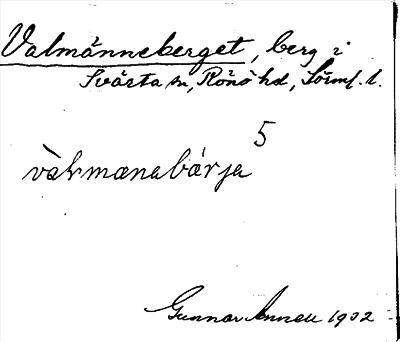 Valmänneberget, berg i
Svärta sn, Rönö hd, Sörml. l.
vàlmänebärja 5
Gunnar Annell 1932